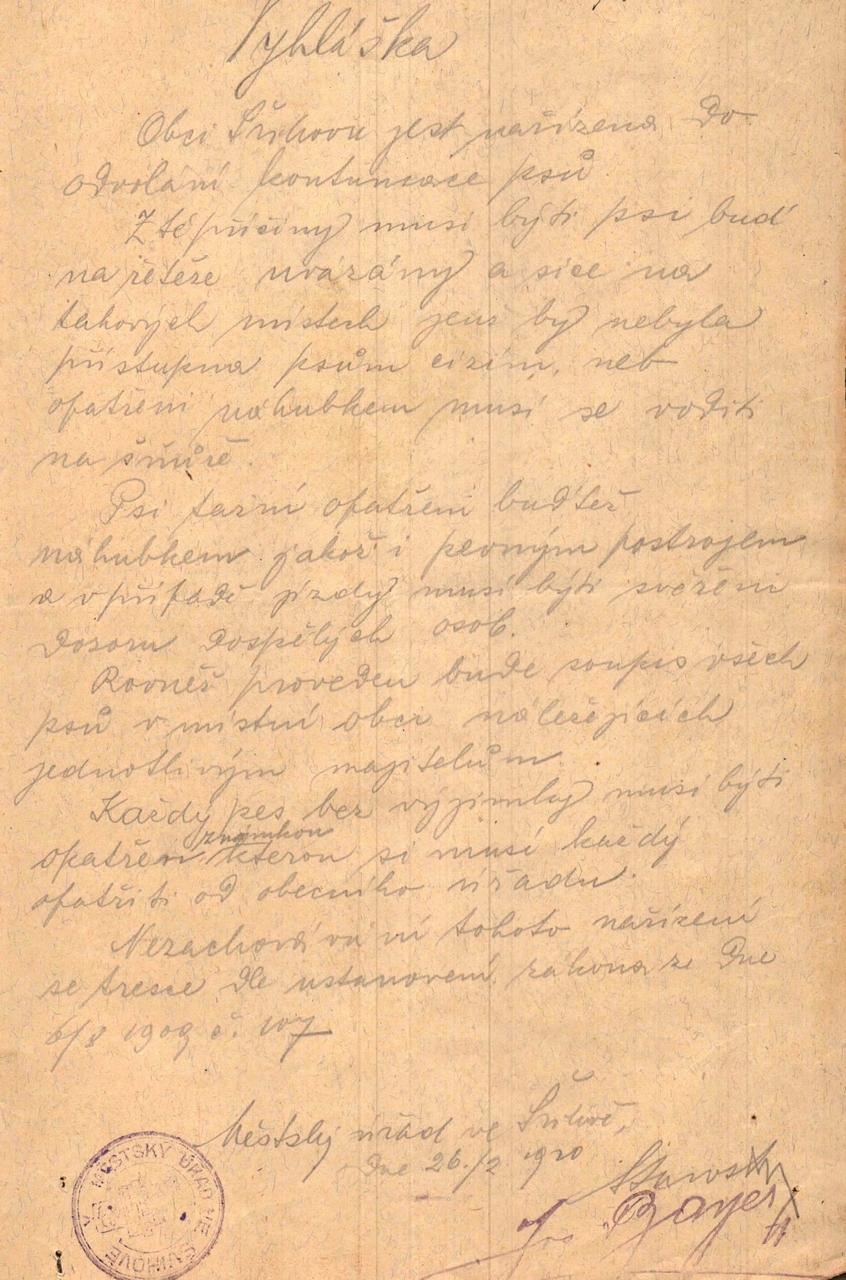 Vyhláška
Obci Švihovu jest nařízena do
odvolání kontumace psů
Z té příčiny musí býti psi buď
na řetěze uvázány a sice na
takových místech jenž by nebyla
přístupna psům cizím, neb
opatřeni náhubkem musí se voditi
na šňůře.
Psi tazní opatřeni buďtež
náhubkem jakož i pevným postrojem
a v případě jízdy musí býti svěřeni
dozoru dospělých osob.
Rovněž proveden bude soupis všech
psů v místní obci náležejících
jednotlivým majitelům.
Každý pes bez vyjímky musí býti
známkou
opatřen, kterou si musí každý
opatřiti od obecního úřadu.
Nezachovávání tohoto nařízení
se tresce dle ustanovení zákona ze dne
6/8 1909 č. 177
Městský úřad ve Švihově,
dne 26./2 1920
Starosta
Jos Bayer
MĚSTSKÝ ÚŘAD VE
ŠVIHOVĚ